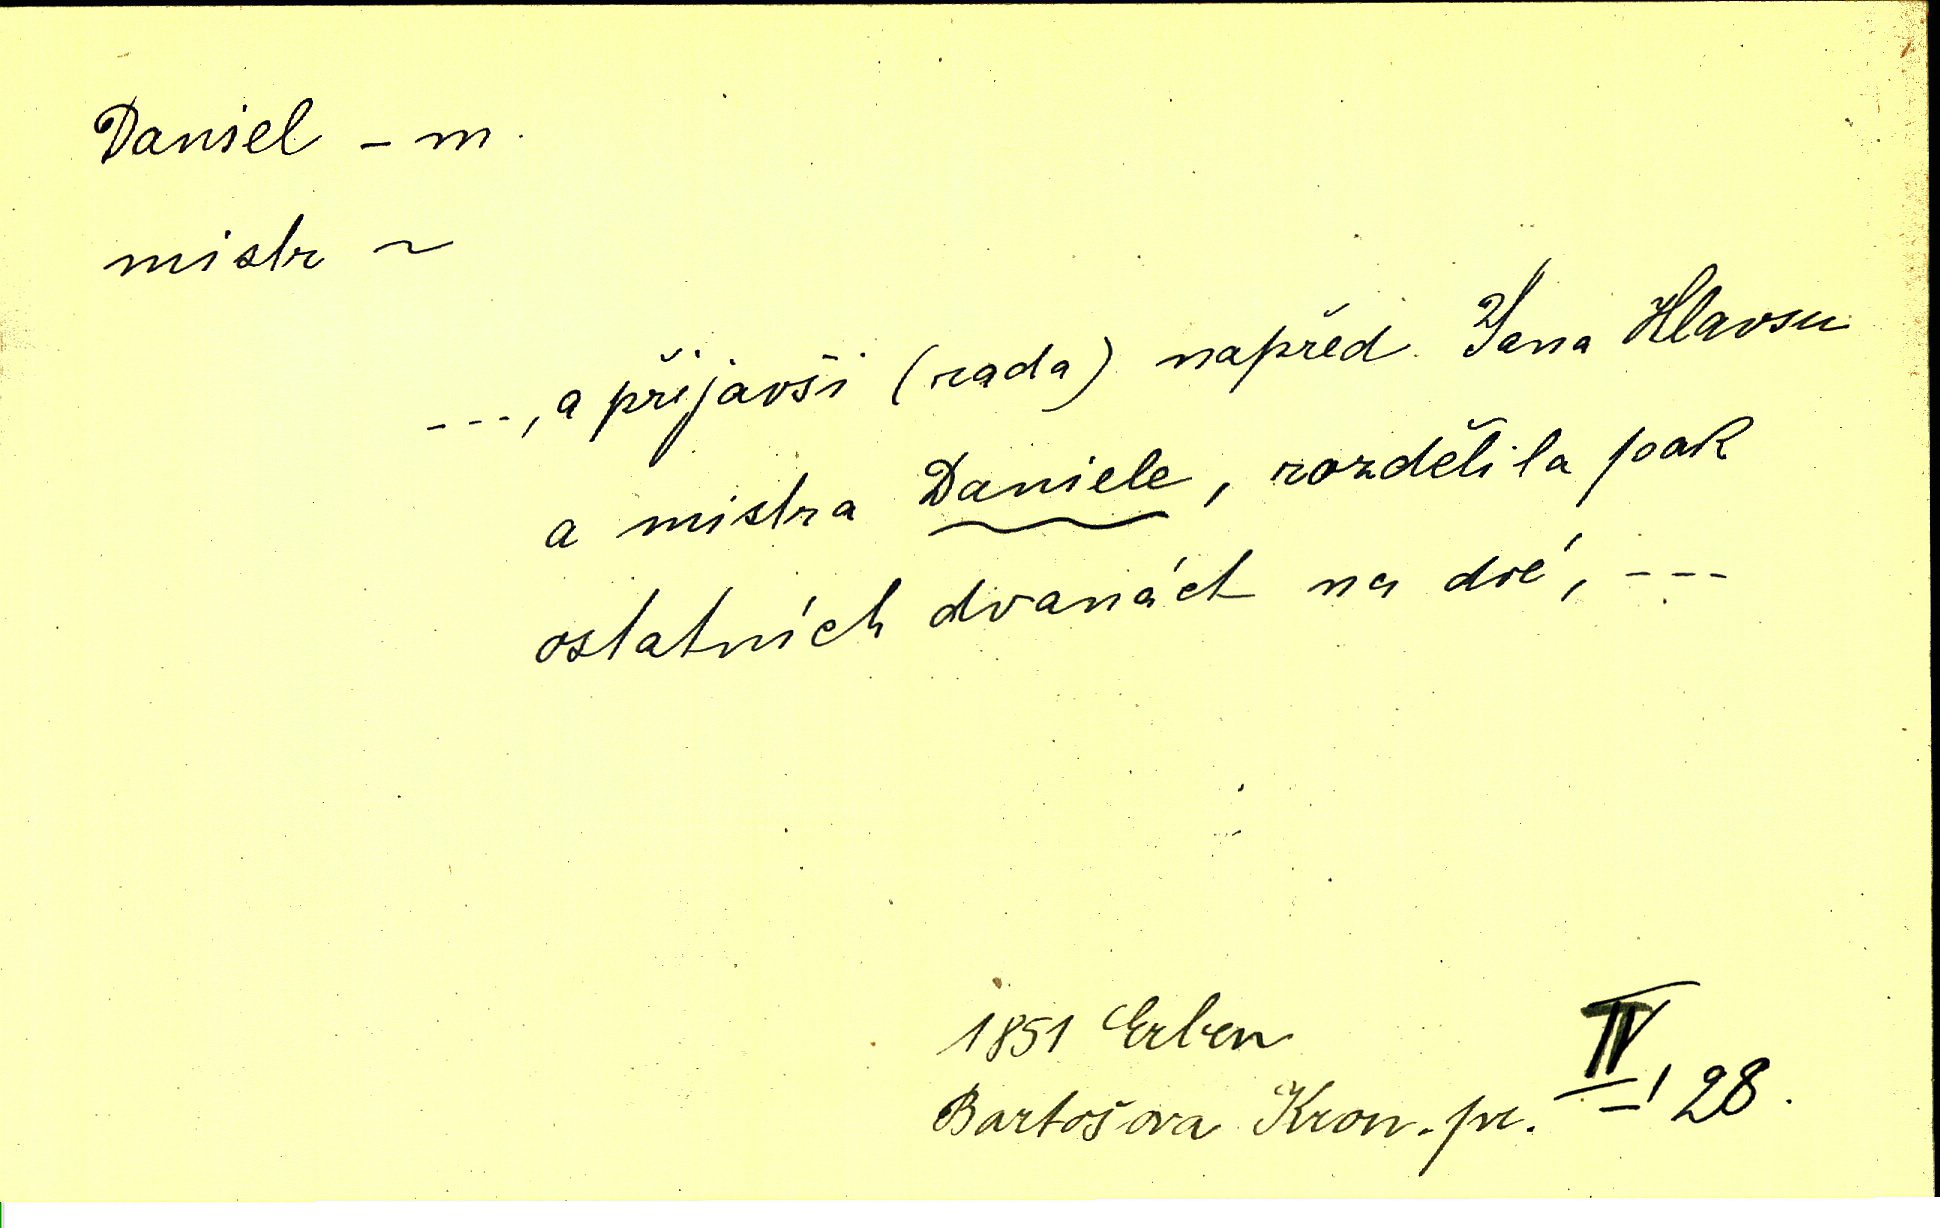 Daniel – m.
mistr ~
---, a přijavši (rada) napřed Jana Hlavsu
a mistra Daniele, rozdělila pak
ostatních dvanáct na dvé, ---
1851 Erben
Bartošova Kron. pr. IV, 28.